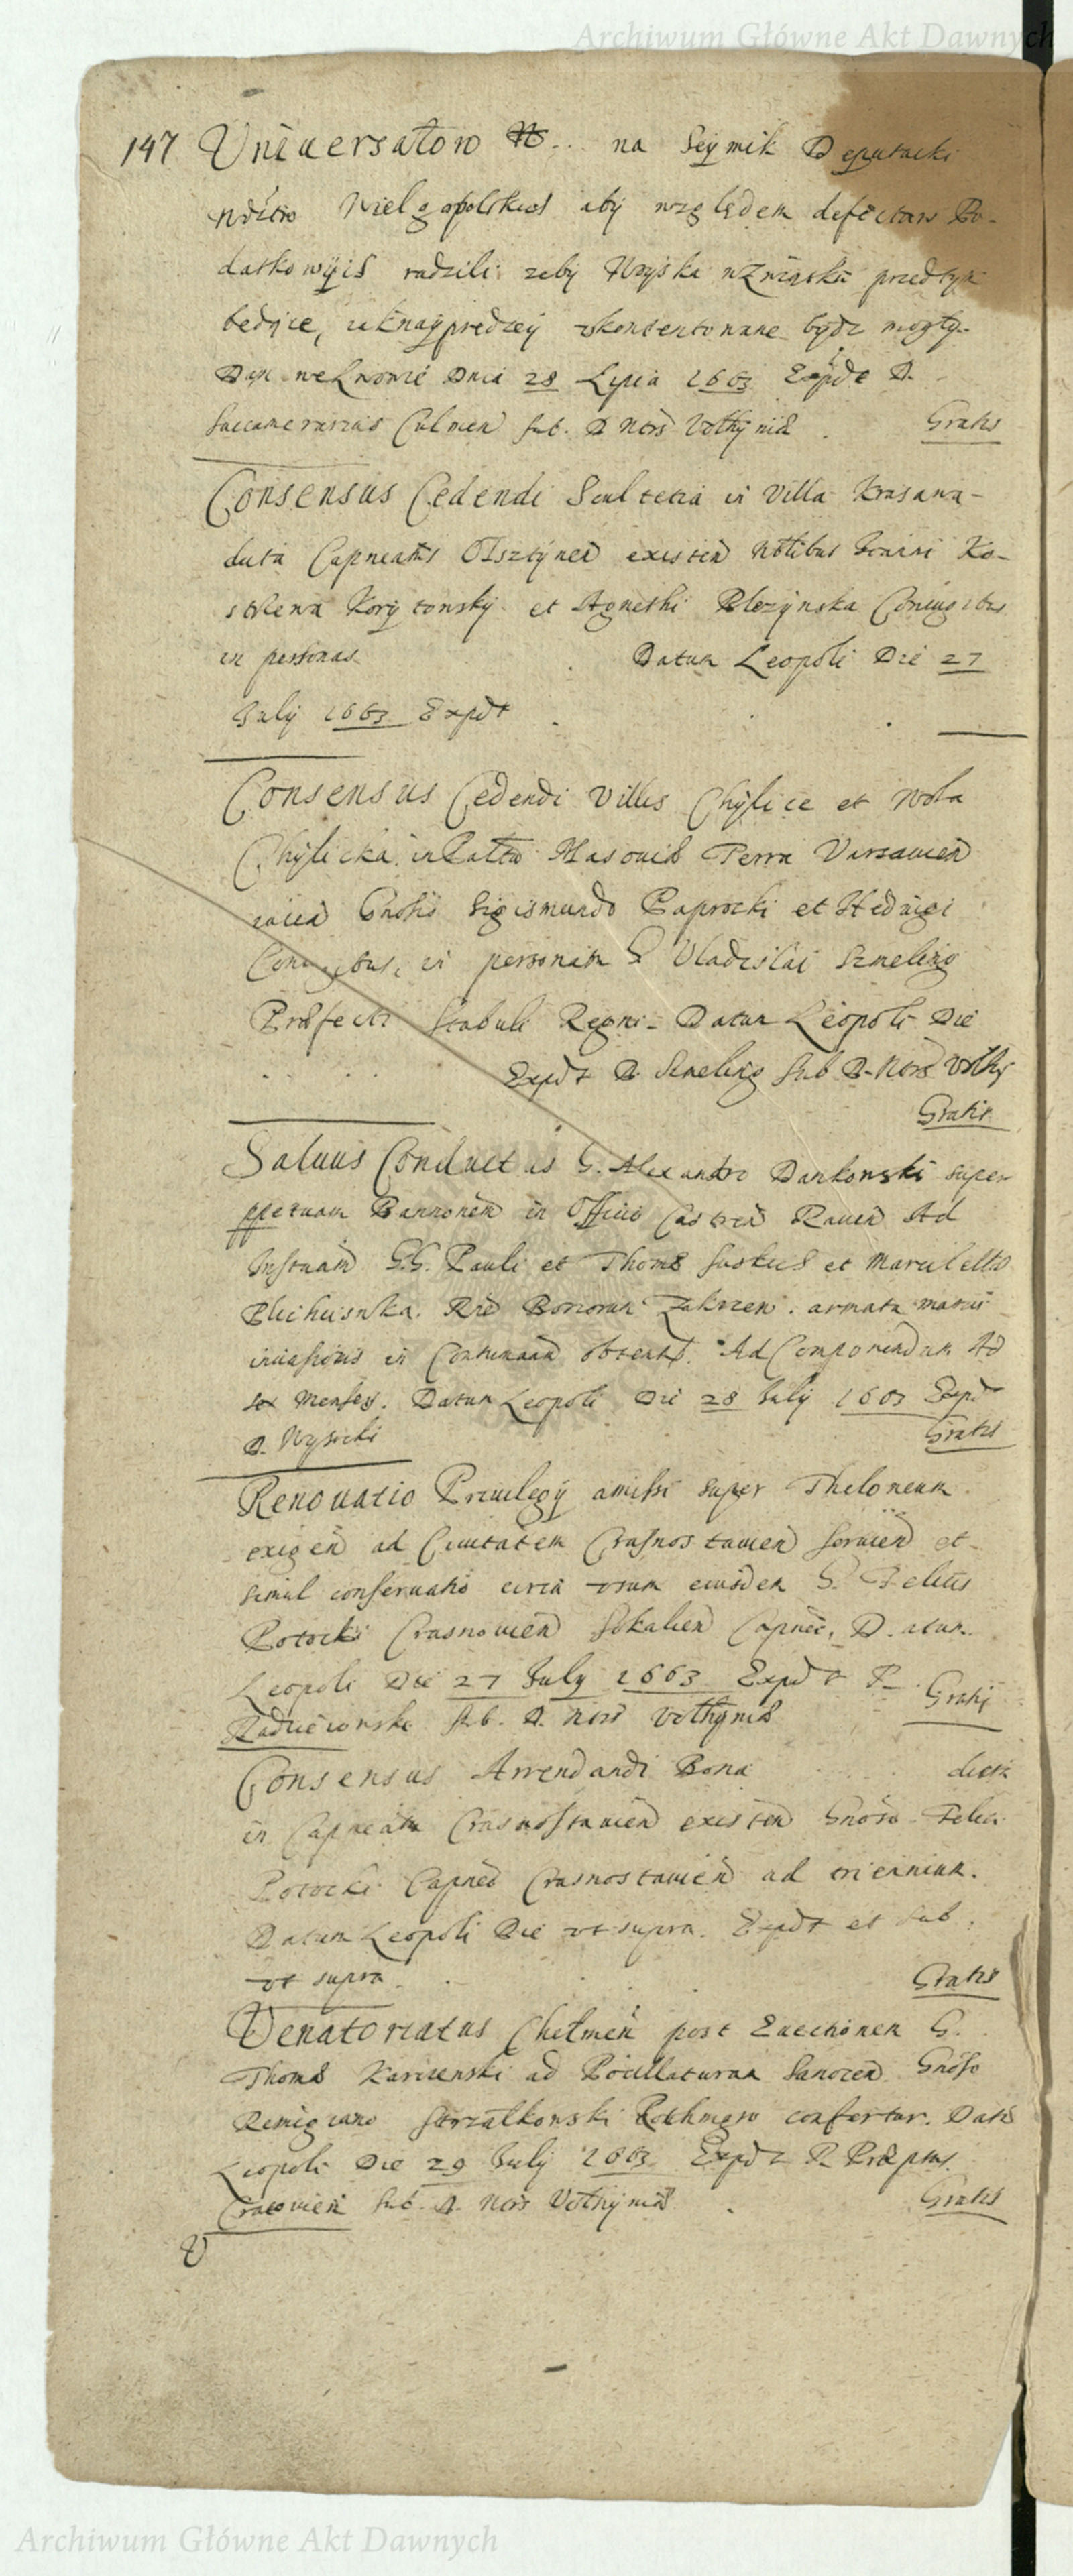 Archiwum Główne Akt Dawnych
147 Uniuersałow na Seymik Deputacki
Wielgopolskieӏ aby względem defectow Po-
datkowyiӏ radzili zeby Woyska w Związku przedtym
bedące, iaknayprędzey vkonsentowane bydz mogły.
Dan we Lwowie Dnia 28 Lipca 1663 Expdt P.
Succamerarius Culmen sub. P. Nois Volhyniӕ Gratis
Consensus Cedendi Scultetiӕ in Villa Krasawa-
duta Capneatus Olsztynen existen Nobilibus Ioanni Ko-
Korytonsky et Agneshi Coniugibus
in personas Datum Leopoli Die 27
July 1663 Expdt
Consensus Cedendi Villis Chylice et Wola
Chylicka in Pałtu Masouiӕ Terra Varsauien
iacen Gnosis Sigismundo Paprocki et Heduigi
Coniugibus, in personam G Vladislai Szmeling
Prӕfecti Stabuli Regni. Datum Leopoli Die
Expdt P. Szmeling Sub P. Nois Volhy
Gratis
Saluus Conductus G. Alexandro Dankowski super
ppetuam Bannonem in Officio Castren Rauen Ad
Instuam G.G. Pauli et Thomӕ et
Rne Bonorum Zakrzew. armata manu
inuasionis in Contumaam obtent. Ad Componendum Ad
sex Menses. Datum Leopoli Die 28 July 1663 Expdt
P. Wysocki Gratis
Renouatio Priuilegy amissi super Theloneum
exigen ad Ciuitatem Crasnostauien seruien et
simul conseruatio circa vsum eiusdem G. Felicis
Potocki Crasnouien Sokalien Capnei. Datum
Leopoli Die 27 July 1663 Expdt P
Radzieiowski sub. P. Nois Volhyniӕ Gratis
Consensus Arrendandi Bona dicta
in Capneatu Crasnostauien existen Gnoso Felici
Potocki Capneo Crasnostauien ad triennium.
Datum Leopoli Die vt supra. Expdt et Sub.
vt supra. Gratis
Venatoriatus Chełmen post Euectionem G.
Thomӕ Karczewski ad Pocillaturam Sanocen. Gnoso
Remigiano Strzałkowski Rothmgro confertur. Datt
Leopoli Die 29 July 1663 Expdt P Prӕptus.
Cracouien Sub. P. Nois Volhyniӕ Gratis
V
Archiwum Główne Akt Dawnych